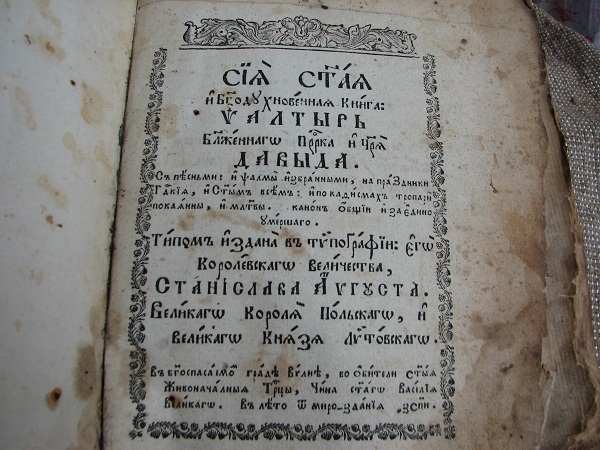 СІѦ̀ СТ҃АѦ
И҆ БГ҃ОДУХНОВЕ́ННАѦ КНИ́ГА:
ѰАЛТЫ́РЬ
БЛАЖЕ́ННАГѠ ПРⷪ҇РКА И҆ ЦРѦ̀
ДАВЫ́ДА.
Съ пѣсньми: и҆ ѱалмы̀ и҆збра́нными, на пра́здники
Гдⷭ҇кїѧ, и҆ Ст҃ымъ всѣмъ: и҆ по каѳисмахъ тропарѝ
покаѧнны, и҆ мл҃твы. канонъ О҆бщїи и҆ за є҆ди́но
у҆ме́ршаго.
Ти́помъ и҆́здана въ Тѷпогра́фїи: є҆гѡ̀
Короле́вскагѡ вели́чества,
СТАНІСЛА́ВА А҆́ѴГУСТА.
Вели́кагѡ Королѧ̀ По́льскагѡ, и҆
вели́кагѡ Кнѧ́зѧ Лѷто́вскагѡ.
Въ бг҃оспаса́емⷪ҇ гра́дѣ Ви́лнѣ, во ѻ҆би́тели ст҃ы́ѧ
Живонача́лныѧ Трⷪ҇цы, Чи́на ст҃а́гѡ Васі́лїа
вели́кагѡ. Въ лѣ́то ѿ миро-зда́нїѧ ҂зспи.